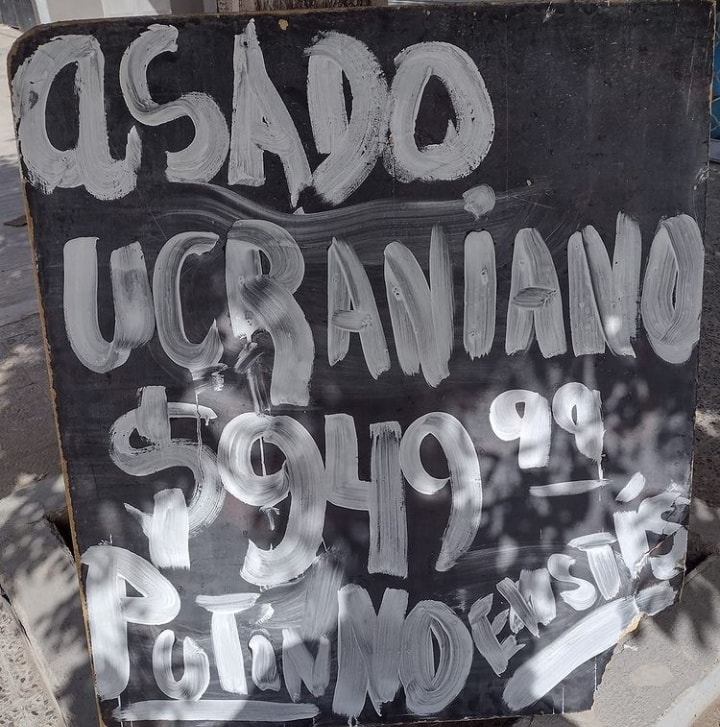 aSADO
UCRANIANO
$949⁹⁹
PUTIN NO EXISTÍS